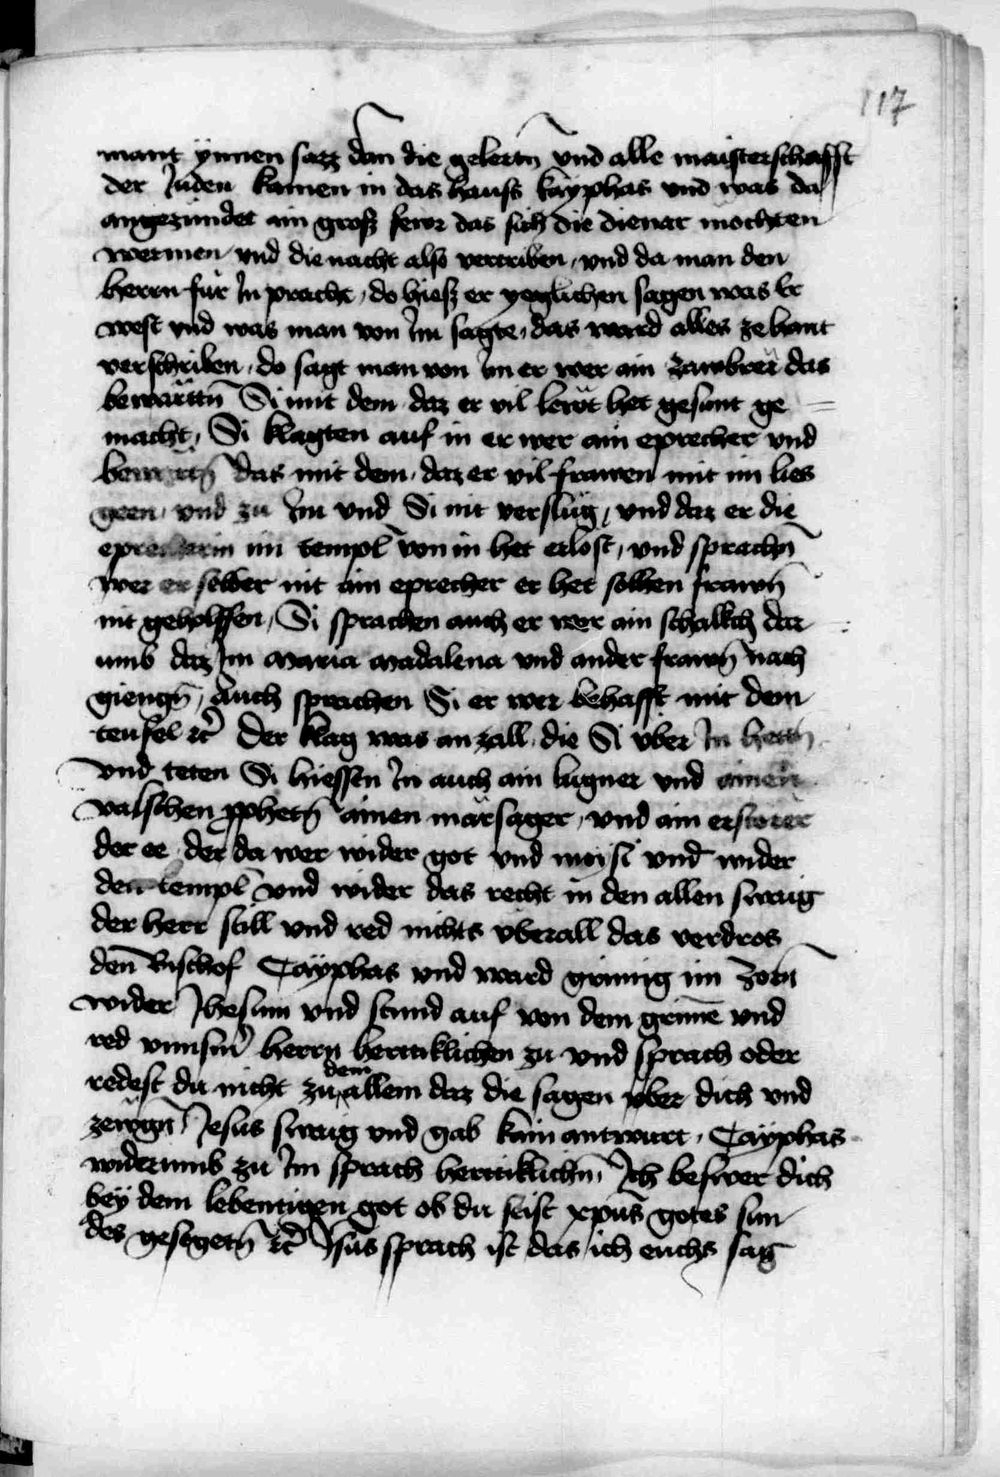 117
mant ynnen sazz dan die gelertn̄ vnd alle maisterschafft
der Juden kamen in das hauss kayphas vnd was da
angezündet ain gross fewr das sich die diener mochten
wermen vnd die nacht also vertriben, vnd da man den
herrn für In pracht, do hiess er yeglichen sagen was Er
west vnd was man von Im sagte, das ward alles zehant
verschriben, do sagt man von im er wer ain zawbrer das
bewärttn̄ Si mit dem daz er vil lewt het gesunt ge=
macht, Si klagten auf in er wer ain eprecher vnd
das mit dem, daz er vil frawen mit im lies
geen, vnd zu Im vnd Si nit verslüg, vnd daz er die
eprecherin im templ̄ von in het erlost, vnd sprachn̄
wer er selber nit ain eprecher er het solhen frawn̄
nit geholffen, Si sprachen auch er wer ain schalkch dar
umb daz Im maria madalena vnd ander frawn̄ nach
giengn̄, Auch sprachen Si er wer behafft mit dem
teufel etc̄ Der klag was an zall, die Si vber In hettn̄
vnd teten Si hiessen In auch ain lugner vnd ainen
valschen ꝓphetn̄ ainen märsager, vnd ain erstorer
der ee, der da wer wider got vnd moisi vnd wider
den templ̄ vnd wider das recht in den allen swaig
der herr still vnd red nichts vberall das verdros
den̄ Bischof Cayphas vnd ward grimig im zorn̄
wider Jhesum vnd stund auf von dem grime̅ vnd
red vnnsm̄ herrn herttiklichen zu vnd sprach oder
redest du nicht zu dem allem daz die sagen vber dich vnd
zewgn̄ Jesus swaig vnd gab kain antwurt, Cayphas
widerumb zu Im sprach herttiklichn̄, Ich beswer dich
bey dem lebentigen got ob du seist xp̄us gotes sun
des gesegetn̄ etc̄ Jsus sprach ist das ich euchs sag